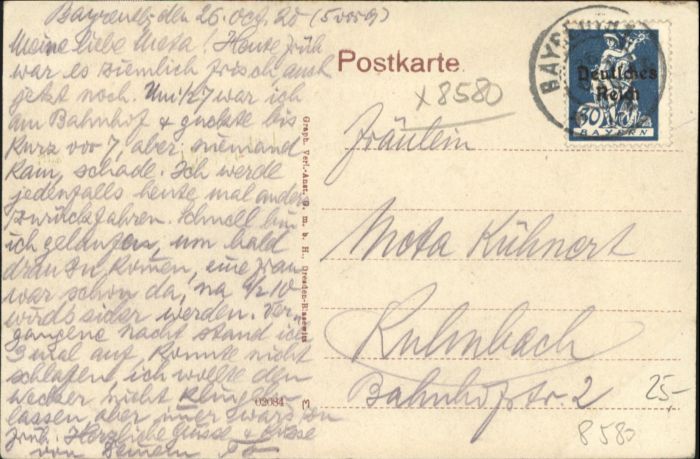 Bayreuth, den 26. Oct. 20 (5 vor 9)
Meine liebe Meta! Heute früh
war es ziemlich frisch auch
jetzt noch. Um 1/2 7 war ich
am Bahnhof & guckte bis
kurz vor 7, aber niemand
kam, schade. Ich werde
jedenfalls heute mal anders
zurückfahren. Schnell bin
ich gelaufen, um bald
dran zu komen, eine Frau
war schon da, na 1/2 10
wirds sider werden. Ver-
gangene Nacht stand ich
3 mal auf, konnte nicht
schlafen, ich wollte den
Wecker nicht klingeln
lassen aber imer wars zu
früh. Herzliche Grüsse & Küsse
von Deinem
Postkarte
x 8580
BAYREUTH
Deutsches
Reich
BAYERN
Fräulein
Meta Kühnert
Kulmbach
Bahnhofstr. 2
25,-
8580
Graph. Verl.-Anst. G. m. b. H., Dresden-Blasewitz
02084